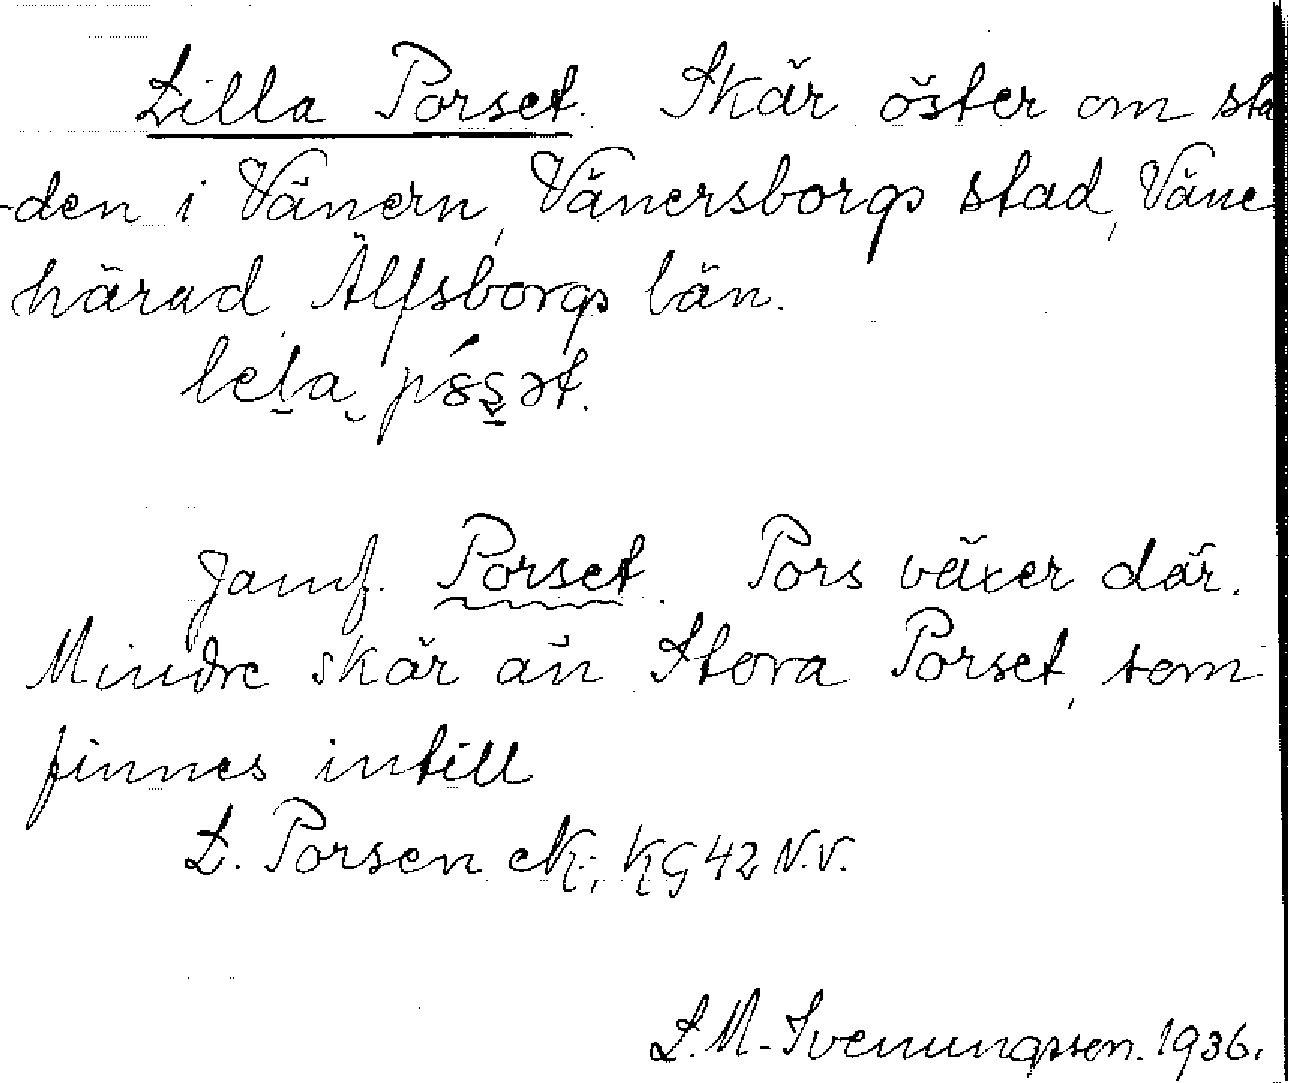 Lilla Porset. Skär öster om sta
-den i Vänern, Vänersborgs stad, Väne
härad, Älfsborgs län.
Jämf. Porset. Pors växer där.
Mindre skär än Stora Porset, som
finnes intill
L. Porsen eK; KG 42 N.V.
L.M. Svenungsson. 1936.